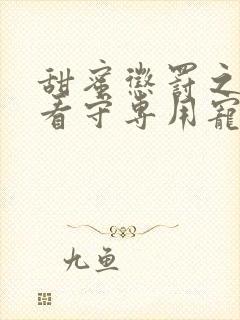 甜蜜惩罚之
看守专用宠
九鱼